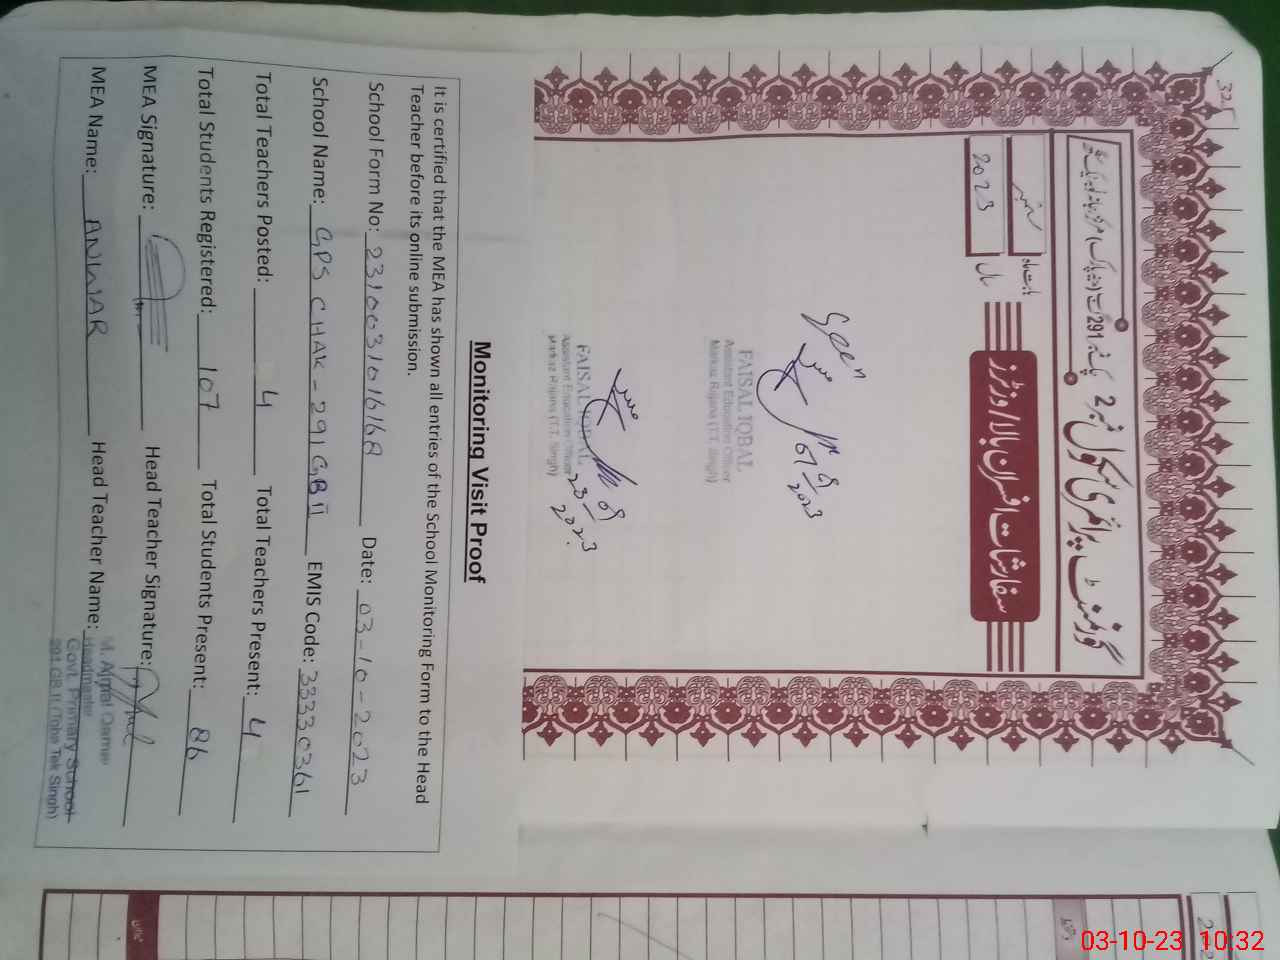 325
گورنمنٹ پرائمری سکول نمبر 2 چک نمبر 291 گ ب
سفارشات افسران بالا / وزٹرز
بابت ماہ ستمبر
سال 2023
Seen
09
07/2023
FAISAL IQBAL
Assistant Education Officer
Markaz Rajana (T.T. Singh)
09
23/2023
FAISAL IQBAL
Assistant Education Officer
Markaz Rajana (T.T. Singh)
Monitoring Visit Proof
It is certified that the MEA has shown all entries of the School Monitoring Form to the Head
Teacher before its online submission.
School Form No: 2310031016168 Date: 03-10-2023
School Name: GPS CHAK-291 GB II EMIS Code: 33330361
Total Teachers Posted: 4 Total Teachers Present: 4
Total Students Registered: 107 Total Students Present: 86
MEA Signature: Head Teacher Signature:
MEA Name: ANWAR Head Teacher Name:
M. Ajmal Qamar
Headmaster
Govt. Primary School
291 GB II (Toba Tek Singh)
03-10-23 10:32